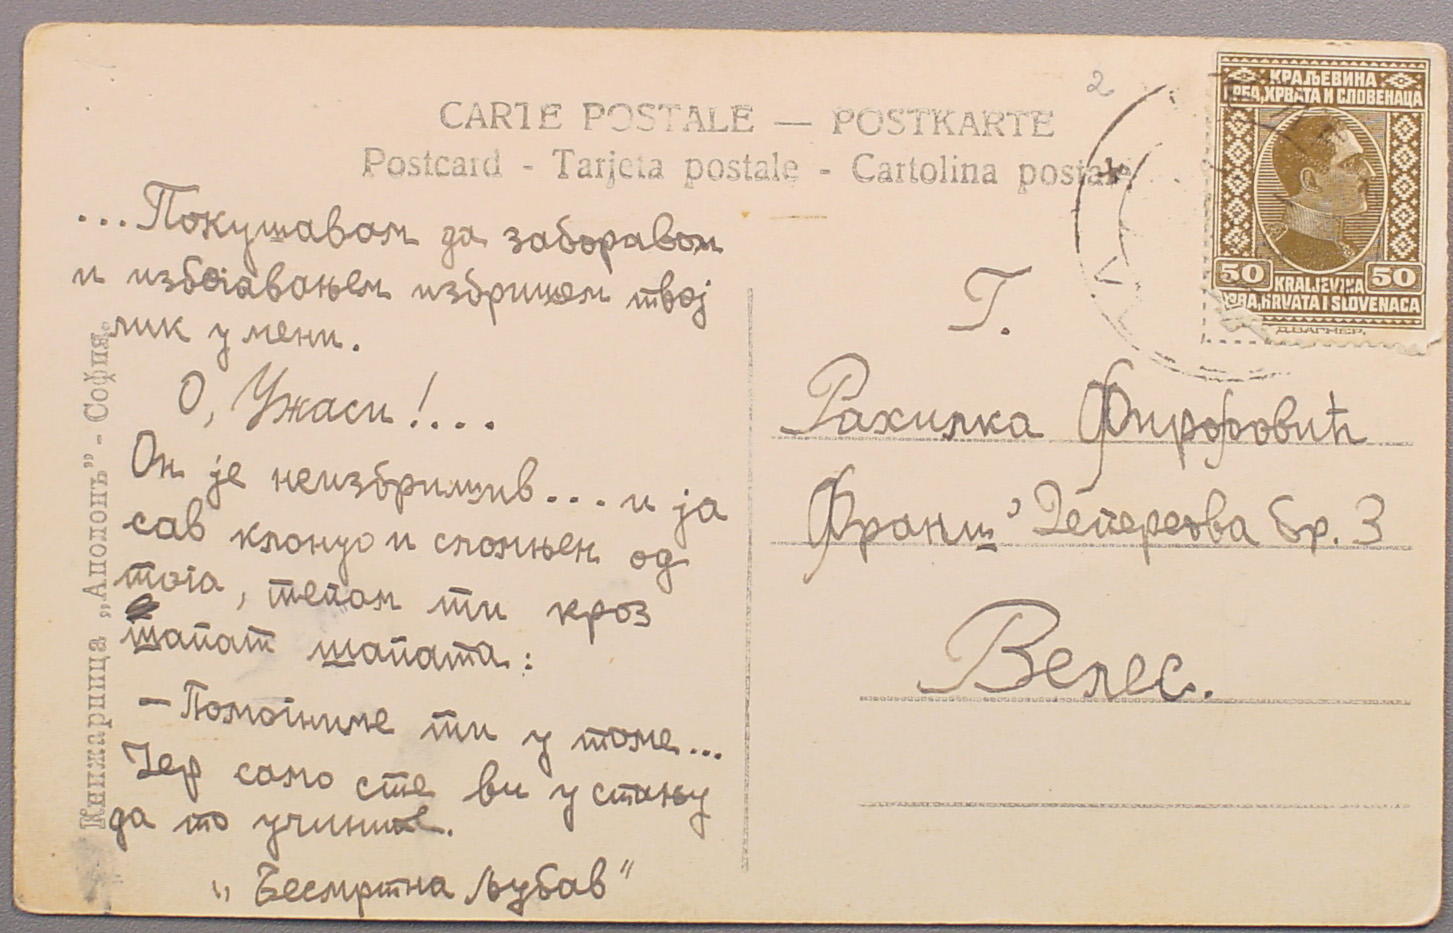 CARTE POSTALE — POSTKARTE
Postcard - Tarjeta postale - Cartolina postale
2
КРАЉЕВИНА
СРБА, ХРВАТА И СЛОВЕНАЦА
50 50
KRALJEVINA
SRBA, HRVATA I SLOVENACA
Д.ВАГНЕР.
...Покушавам да заборавом
и избегавањем избришем твој
лик у мени.
О, Ужаси!...
Он је неизбришив... и ја
сав клонуо и сломљен од
тога, тепам ти кроз
шапат шапата:
— Помогниме ти у томе...
Јер само сте ви у стању
да то учините.
„Бесмртна љубав"
Г.
Рахилка
Франш' Депереова бр. 3
Велес.
Книжарница „Аполонъ" - София.